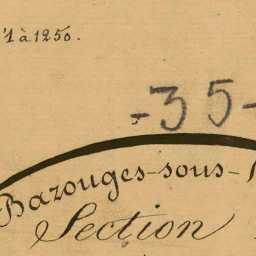 1 à 1250.
-35-
Bazouges-sous-
Section